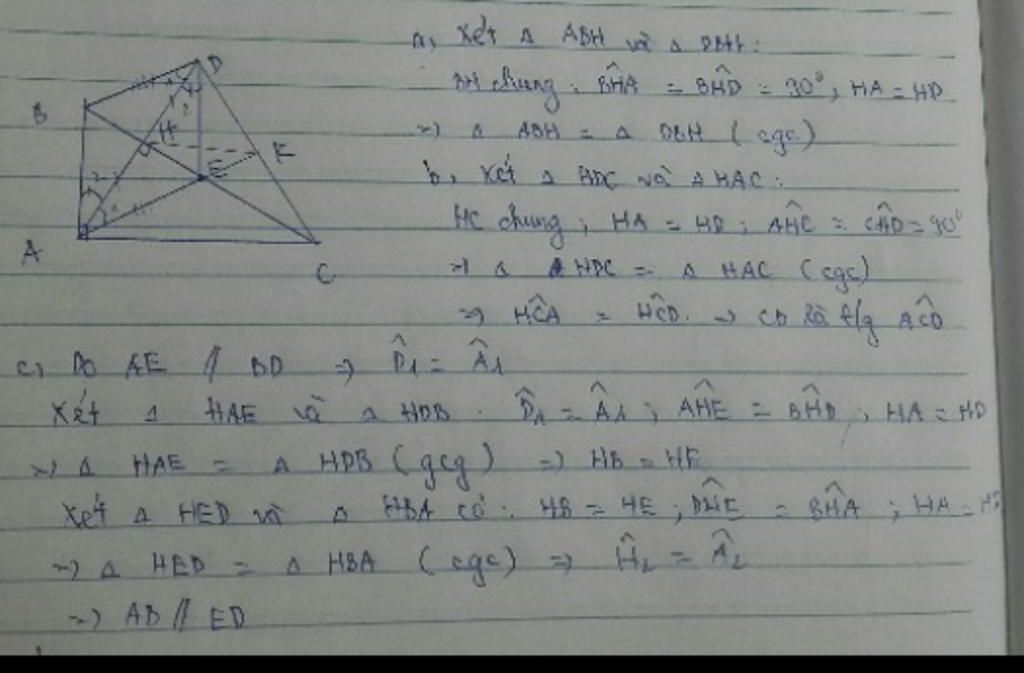 B
D
H
2
K
E
2
1
A
C
a, Xét Δ ABH và Δ DBH:
BH chung; BĤA = BĤD = 90°; HA = HD
=> Δ ABH = Δ DBH (cgc)
b, Xét Δ HDC và Δ HAC:
HC chung; HA = HD; AĤC = CĤD = 90°
=> Δ HDC = Δ HAC (cgc)
=> HĈA = HĈD => CB là t/g AĈD
c, Do AE // BD => D̂1 = Â1
Xét Δ HAE và Δ HDB: D̂1 = Â1; AĤE = BĤD; HA = HD
=> Δ HAE = Δ HDB (gcg) => HB = HE
Xét Δ HED và Δ HBA có: HB = HE; DĤE = BĤA; HA =
=> Δ HED = Δ HBA (cgc) => Ĥ2 = Â2
=> AB // ED